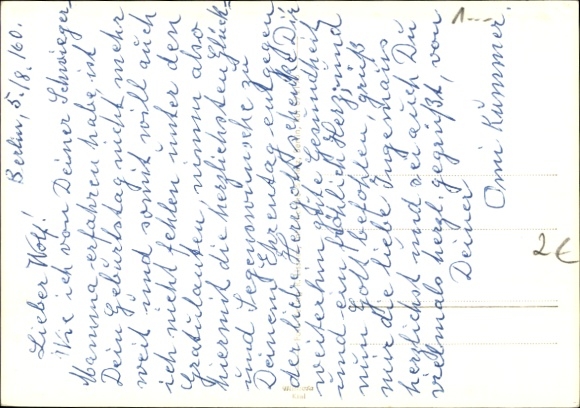 Berlin, 5./8. 60.
Lieber Wolf!
Wie ich von Deiner Schwieger-
Mamma erfahren habe, ist
Dein Geburtstag nicht mehr
weit und somit will auch
ich nicht fehlen unter den
Gratulanten, nimm also
hiermit die herzlichsten Glück-
und Segenswünsche zu
Deinem Ehrentag entgegen
der liebe Herrgott schenke Dir
weiterhin gute Gesundheit
und ein fröhlich Herz, und
nun Gott befohlen, grüß
mir die liebe
herzlichst und sei auch Du
vielmals herzl. gegrüßt, von
Deiner
Omi Kummer.
1.--
2€